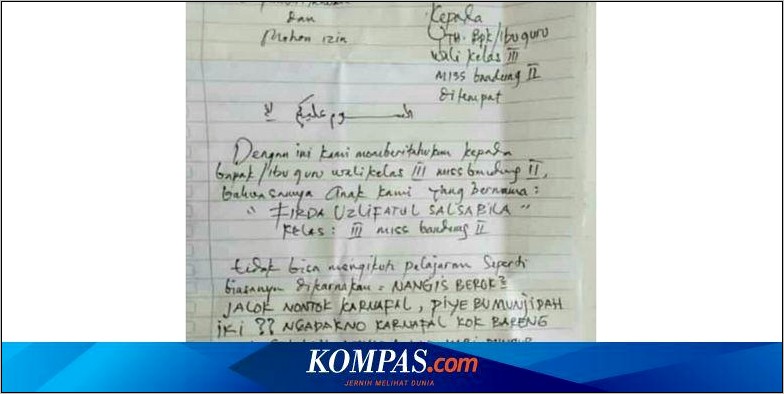 dan
Mohon izin
Kepada
YTH. Bpk/ibu guru
wali kelas III
MISS bandung II
ditempat
Dengan ini kami memberitahukan kepada
bapak/ibu guru wali kelas III miss bandung II,
bahwasanya anak kami yang bernama:
" FIRDA UZLIFATUL SALSABILA "
kelas : III miss bandung II
tidak bisa mengikuti pelajaran seperti
biasanya dikarnakan = NANGIS BEROK²
JALOK NONTOK KARNAFAL, PIYE BU MUNJIDAH
iki ?? NGADAKNO KARNAFAL KOK BARENG
KOMPAS.com
JERNIH MELIHAT DUNIA